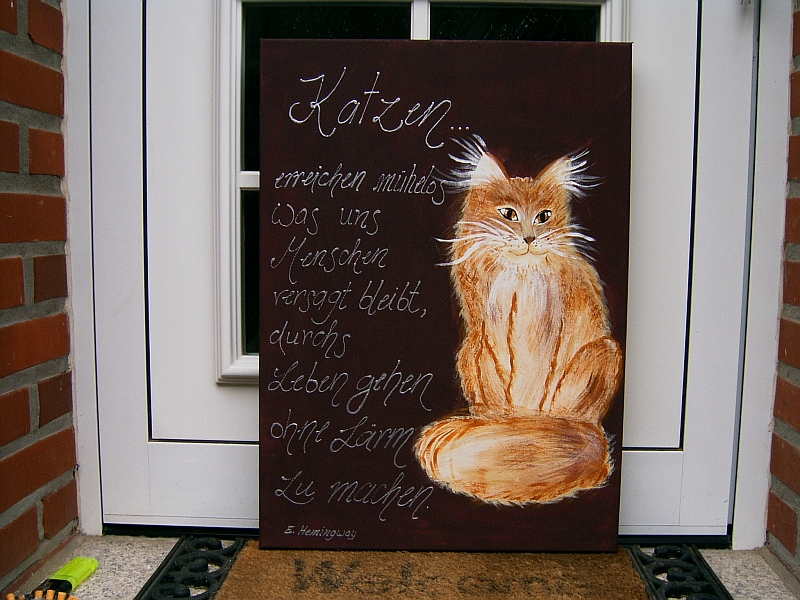 Katzen...
erreichen mühelos
was uns
Menschen
versagt bleibt,
durchs
Leben gehen
ohne Lärm
zu machen.
E. Hemingway